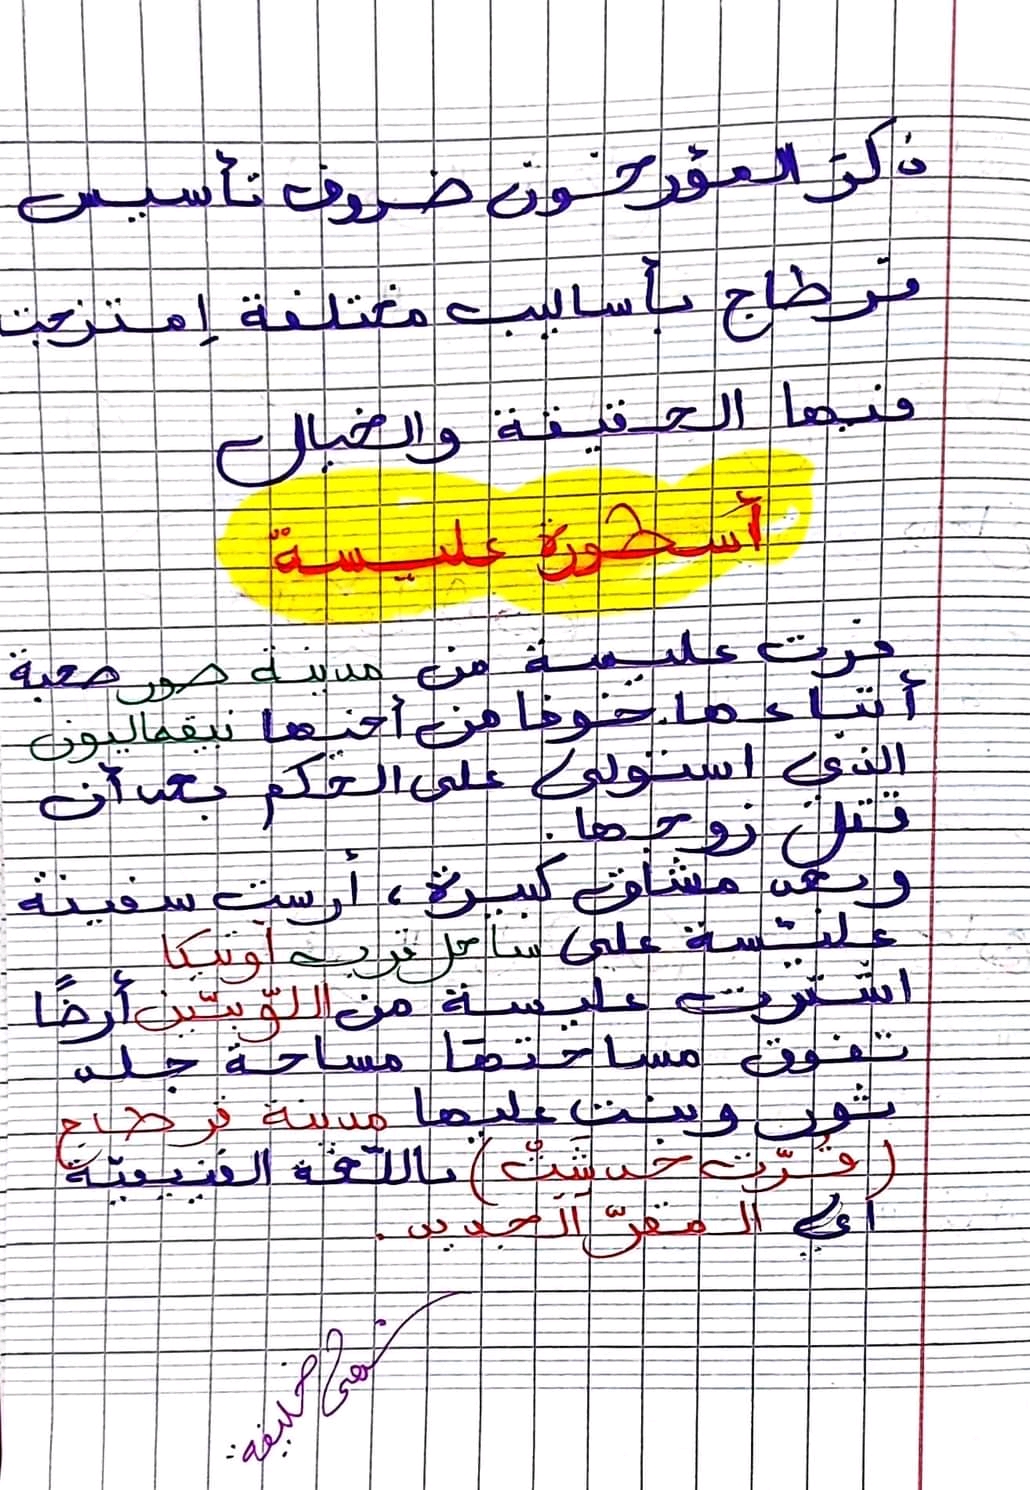 ذكر المؤرخون ظروف تأسيس
قرطاج بأساليب مختلفة إمتزجت
فيها الحقيقة والخيال
أسطورة عليسة
فرت عليسة من مدينة صور صحبة
أتباعها خوفا من أخيها بيقماليون
الذي استولى على الحكم بعد أن
قتل زوجها.
وبعد مشاق كبيرة، أرست سفينة
عليسة على ساحل قرب أوتيكا
اشترت عليسة من اللّوبيّين أرضًا
تفوق مساحتها مساحة جلد
ثور وبنت عليها مدينة قرطاج
(قَرْت حدشت) باللّغة الفنيقيّة
أي المقرّ الجديد.
خليفة